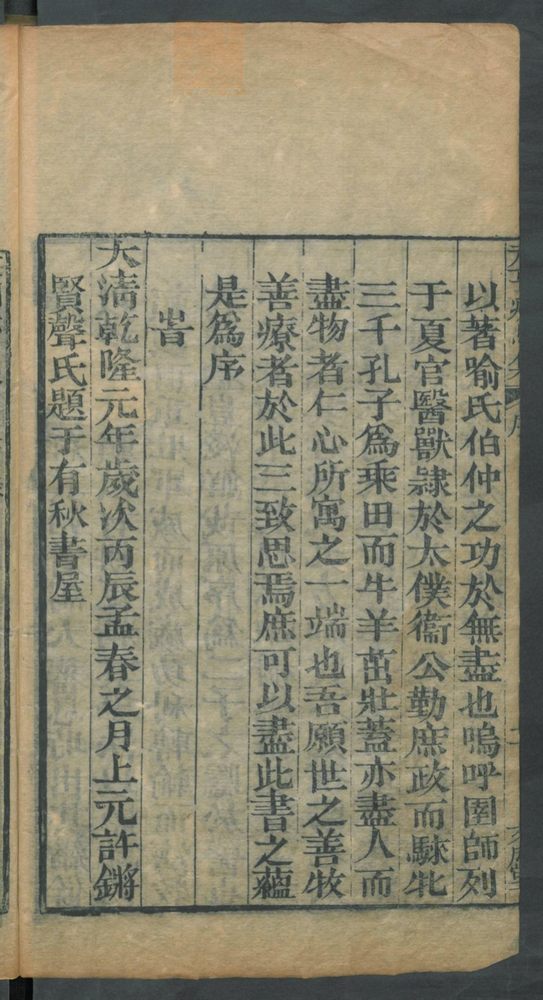 以著喻氏伯仲之功於無盡也嗚呼圉師列
于夏官醫獸隷於太僕衞公勤庶政而騋牝
三千孔子爲乘田而牛羊茁壯蓋亦盡人而
盡物者仁心所寓之一端也吾願世之善牧
善療者於此三致思焉庶可以盡此書之蘊
是爲序
旹
大清乾隆元年歲次丙辰孟春之月上元許鏘
賢聲氏題于有秋書屋